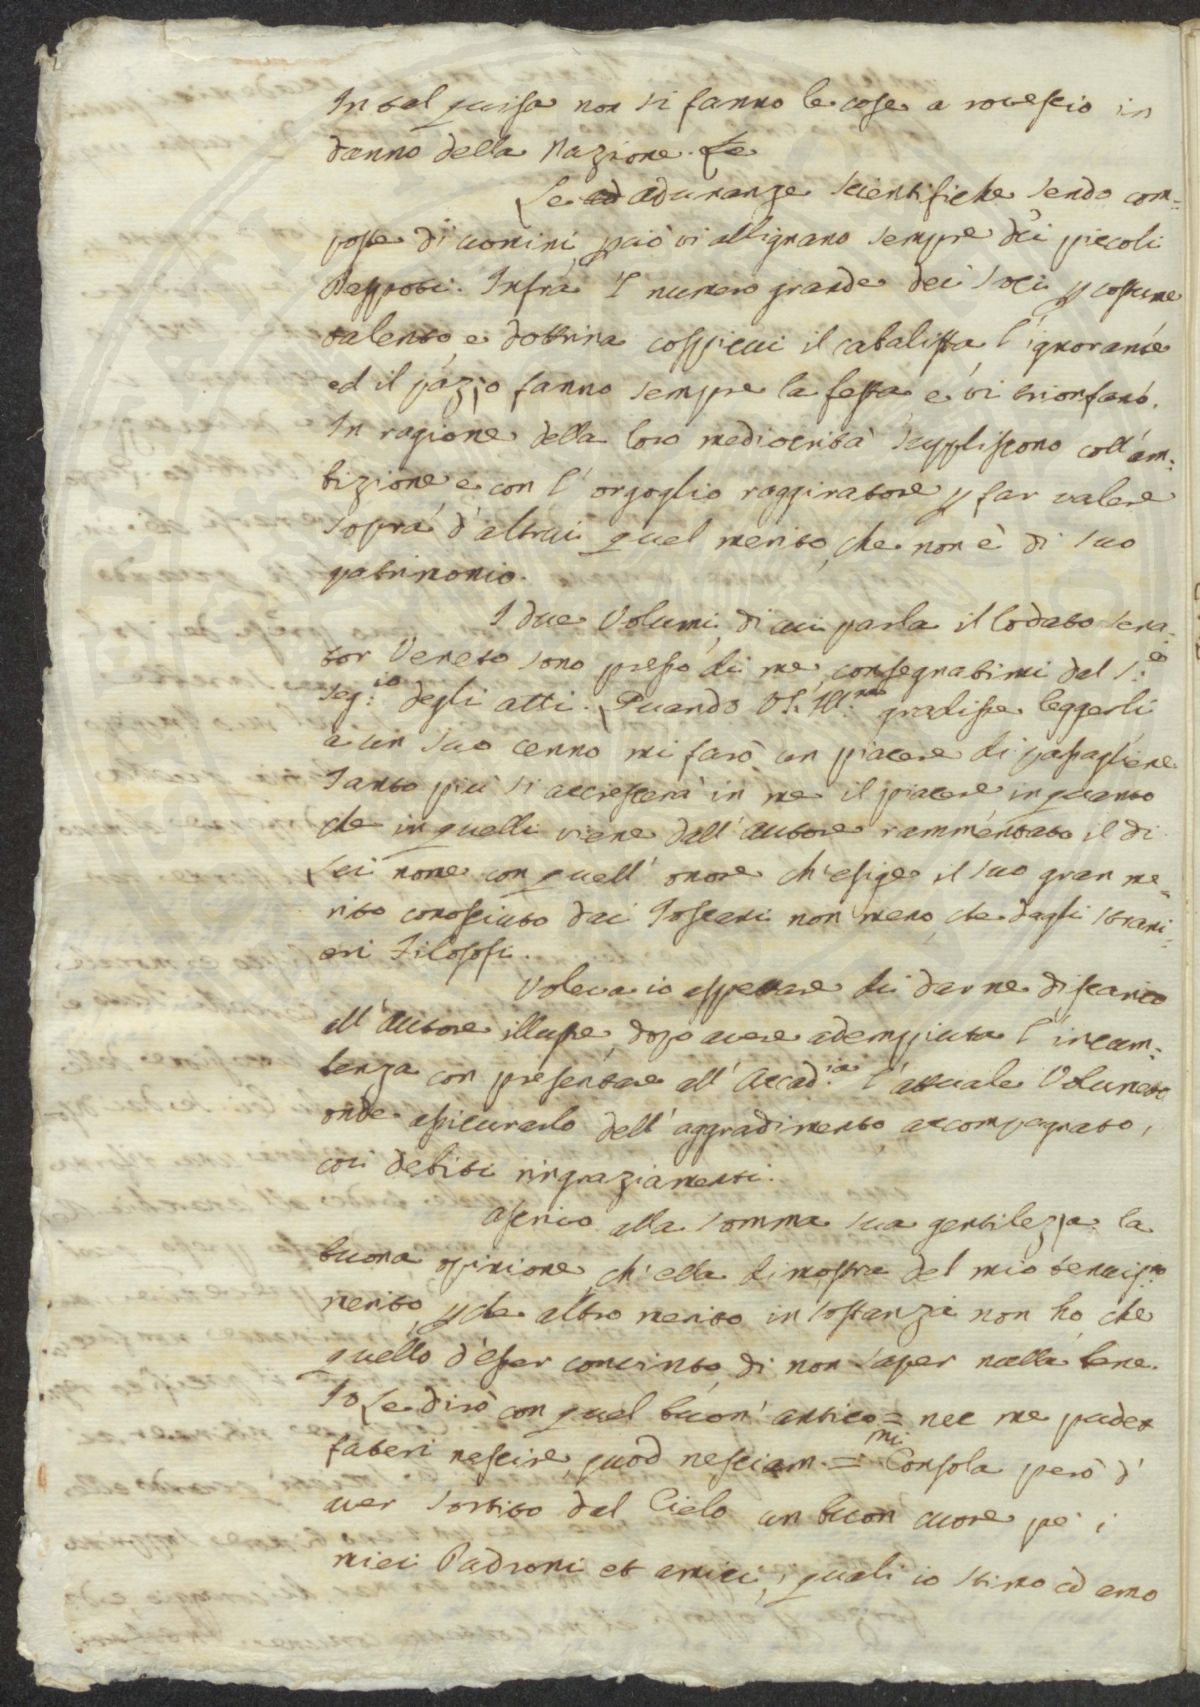 In tal guisa non si fanno le cose a rovescio in
danno della Nazione. Le
Le ad adunanze scientifiche sendo com=
poste di uomini, perciò vi allignano sempre dei piccoli
Rapporti. Infra l' numero grande dei Soci p costume
talento e dottrina cospicui il cabalista l'ignorante
ed il pazzo fanno sempre la festa e vi trionfano.
In ragione della loro mediocrità suppliscono coll'am=
bizione e con l'orgoglio raggiratore p far valere
sopra d'altrui quel merito, che non è di suo
patrimonio.
I due Volumi, di cui parla il lodato Sena=
tor Veneto sono presso di me, consegnatimi dal S.
Seg.io degli atti. Quando VS. Ill.ma gradisse leggerli
a un suo cenno mi farò un piacere di passagliene.
Tanto più si accrescerà in me il piacere in quanto
che in quelli viene dall'autore rammentato il di
Lei nome con quell'onore ch'esige il suo gran me=
rito conosciuto dai Toscani non meno, che dagli strani=
eri Filosofi.
Voleva io aspettare di darne discarico
all'autore illustre, dopo avere adempiuta l'incum=
benza con presentare all'Accad.ia l'attuale Volume
onde assicurarlo dell'aggradimento, accompagnato,
coi debiti ringraziamenti.
Ascrivo alla somma sua gentilezza la
buona opinione, ch'ella dimostra del mio tenuiss.mo
merito, p che altro merito in sostanza non ho, che
quello d'esser convinto, di non saper nulla bene.
Io Le dirò con quel buon' antico = nec me pudet
fateri nescire, quod nesciam = mi Consola però d'
aver sortito dal Cielo un buon cuore pe' i
miei Padroni et amici, i quali io stimo ed amo